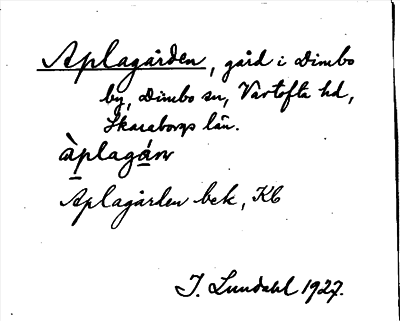 Aplagården, gård i Dimbo
by, Dimbo sn, Vartofta hd,
Skaraborgs län.
àplagán
Aplagården bek, Kb
I. Lundahl 1927.